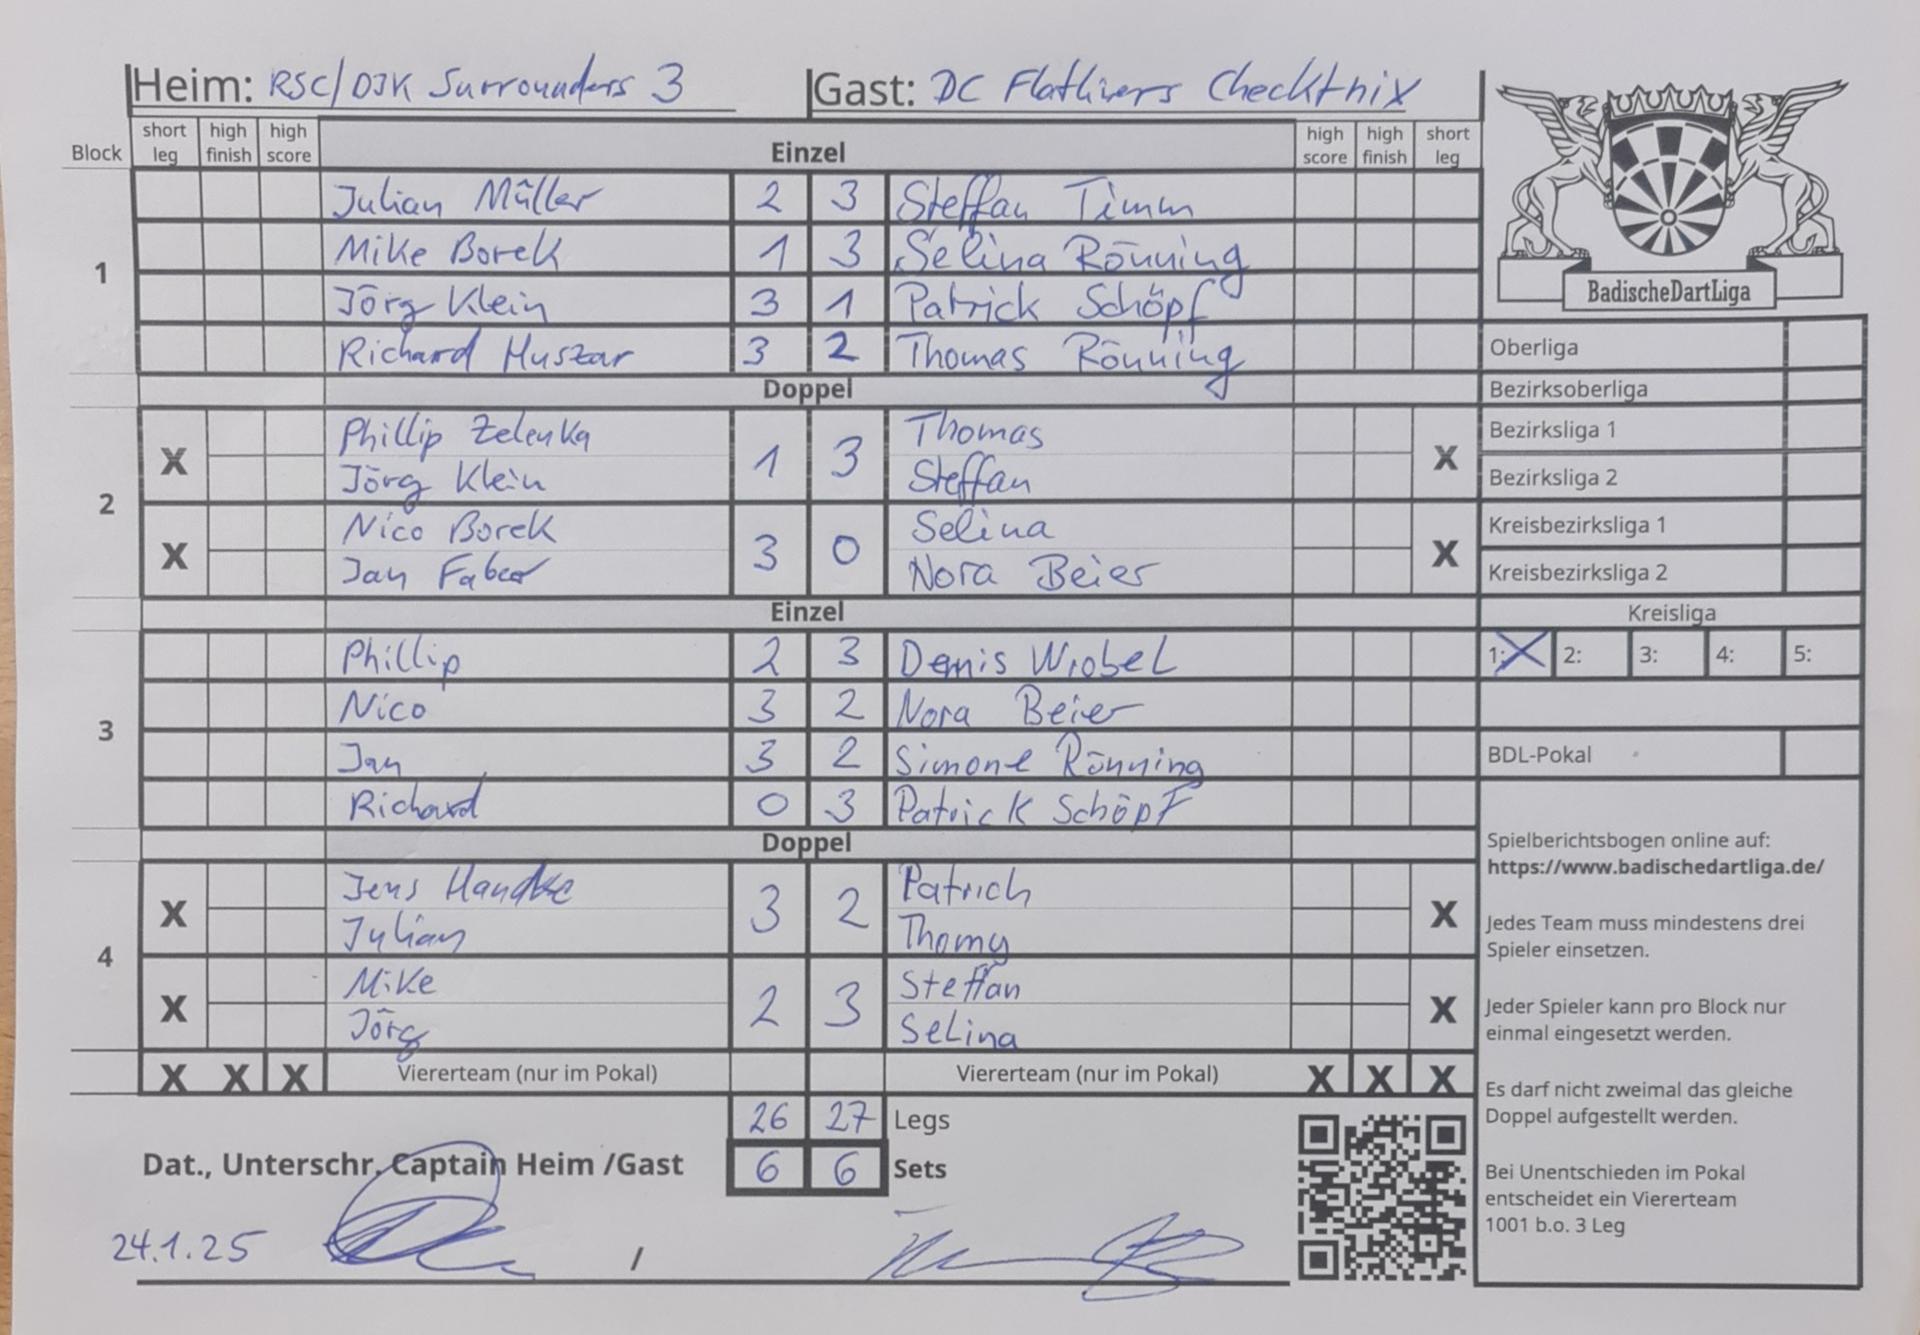 Heim: RSC/DJK Surrounders 3 Gast: DC Flatliners Checktnix
Block short leg high finish high score Einzel high score high finish short leg
1
Julian Müller 2 3 Steffan Timm
Mike Borek 1 3 Selina Rönning
Jörg Klein 3 1 Patrick Schöpf
Richard Huszar 3 2 Thomas Rönning
Doppel
2
X Phillip Zelenka 1 3 Thomas X
Jörg Klein Steffan
X Nico Borek 3 0 Selina X
Jan Faber Nora Beier
Einzel
3
Phillip 2 3 Dennis Wrobel
Nico 3 2 Nora Beier
Jan 3 2 Simone Rönning
Richard 0 3 Patrick Schöpf
Doppel
4
X Jens Handke 3 2 Patrich X
Julian Thomy
X Mike 2 3 Steffan X
Jörg Selina
X X X Viererteam (nur im Pokal) Viererteam (nur im Pokal) X X X
26 27 Legs
6 6 Sets
Dat., Unterschr. Captain Heim /Gast
24.1.25 /
BadischeDartLiga
Oberliga
Bezirksoberliga
Bezirksliga 1
Bezirksliga 2
Kreisbezirksliga 1
Kreisbezirksliga 2
Kreisliga
1: X 2: 3: 4: 5:
BDL-Pokal
Spielberichtsbogen online auf:
https://www.badischedartliga.de/
Jedes Team muss mindestens drei
Spieler einsetzen.
Jeder Spieler kann pro Block nur
einmal eingesetzt werden.
Es darf nicht zweimal das gleiche
Doppel aufgestellt werden.
Bei Unentschieden im Pokal
entscheidet ein Viererteam
1001 b.o. 3 Leg